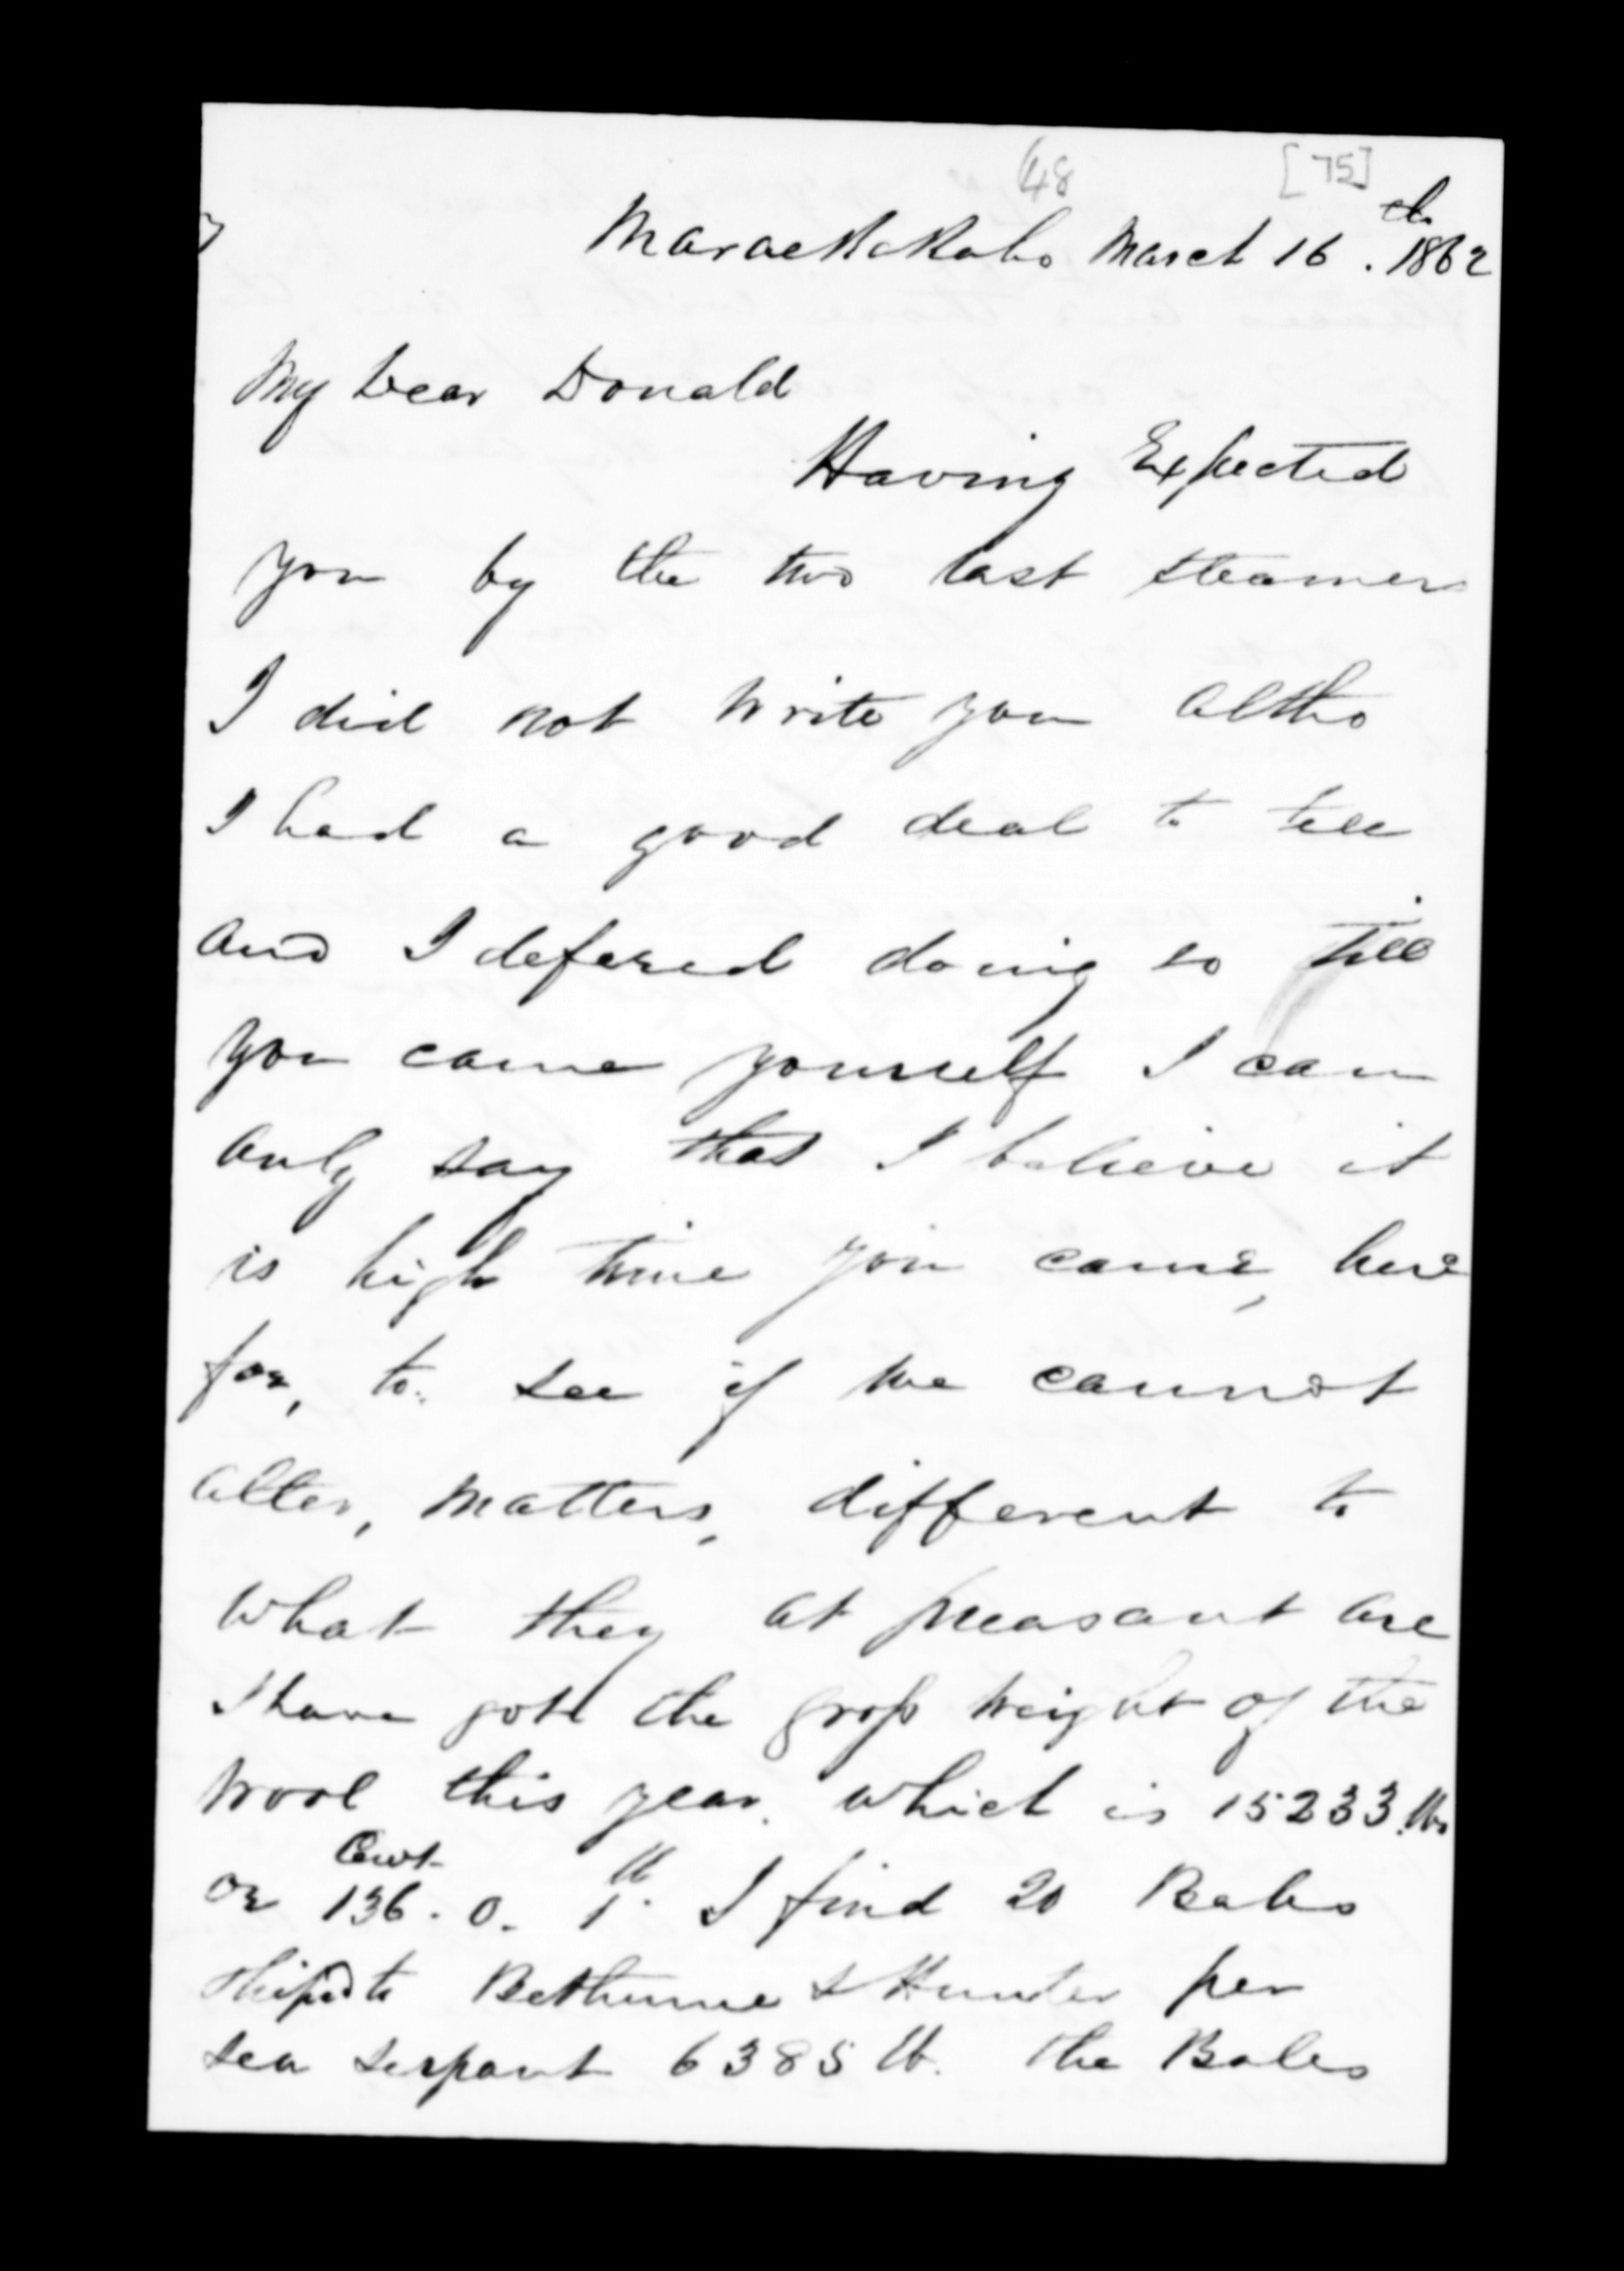 (48 [75]
Maraekakaho March 16th. 1862
My Dear Donald
Having Expected
you by the two last steamers
I did not write you altho
I had a good deal to tell
and I defered doing so till
you came yourself I can
only say that I believe it
is high time you came, here
for, to. see if we cannot
alter, matters, different to
what they at preasant are
I have got the gross weight of the
wool this year. which is 15233. lbs
or 136 Cwt. 0. 1 lb. I find 20 Bales
shiped to Bethune & Hunter per
sea serpant 6385 lb. the Bales